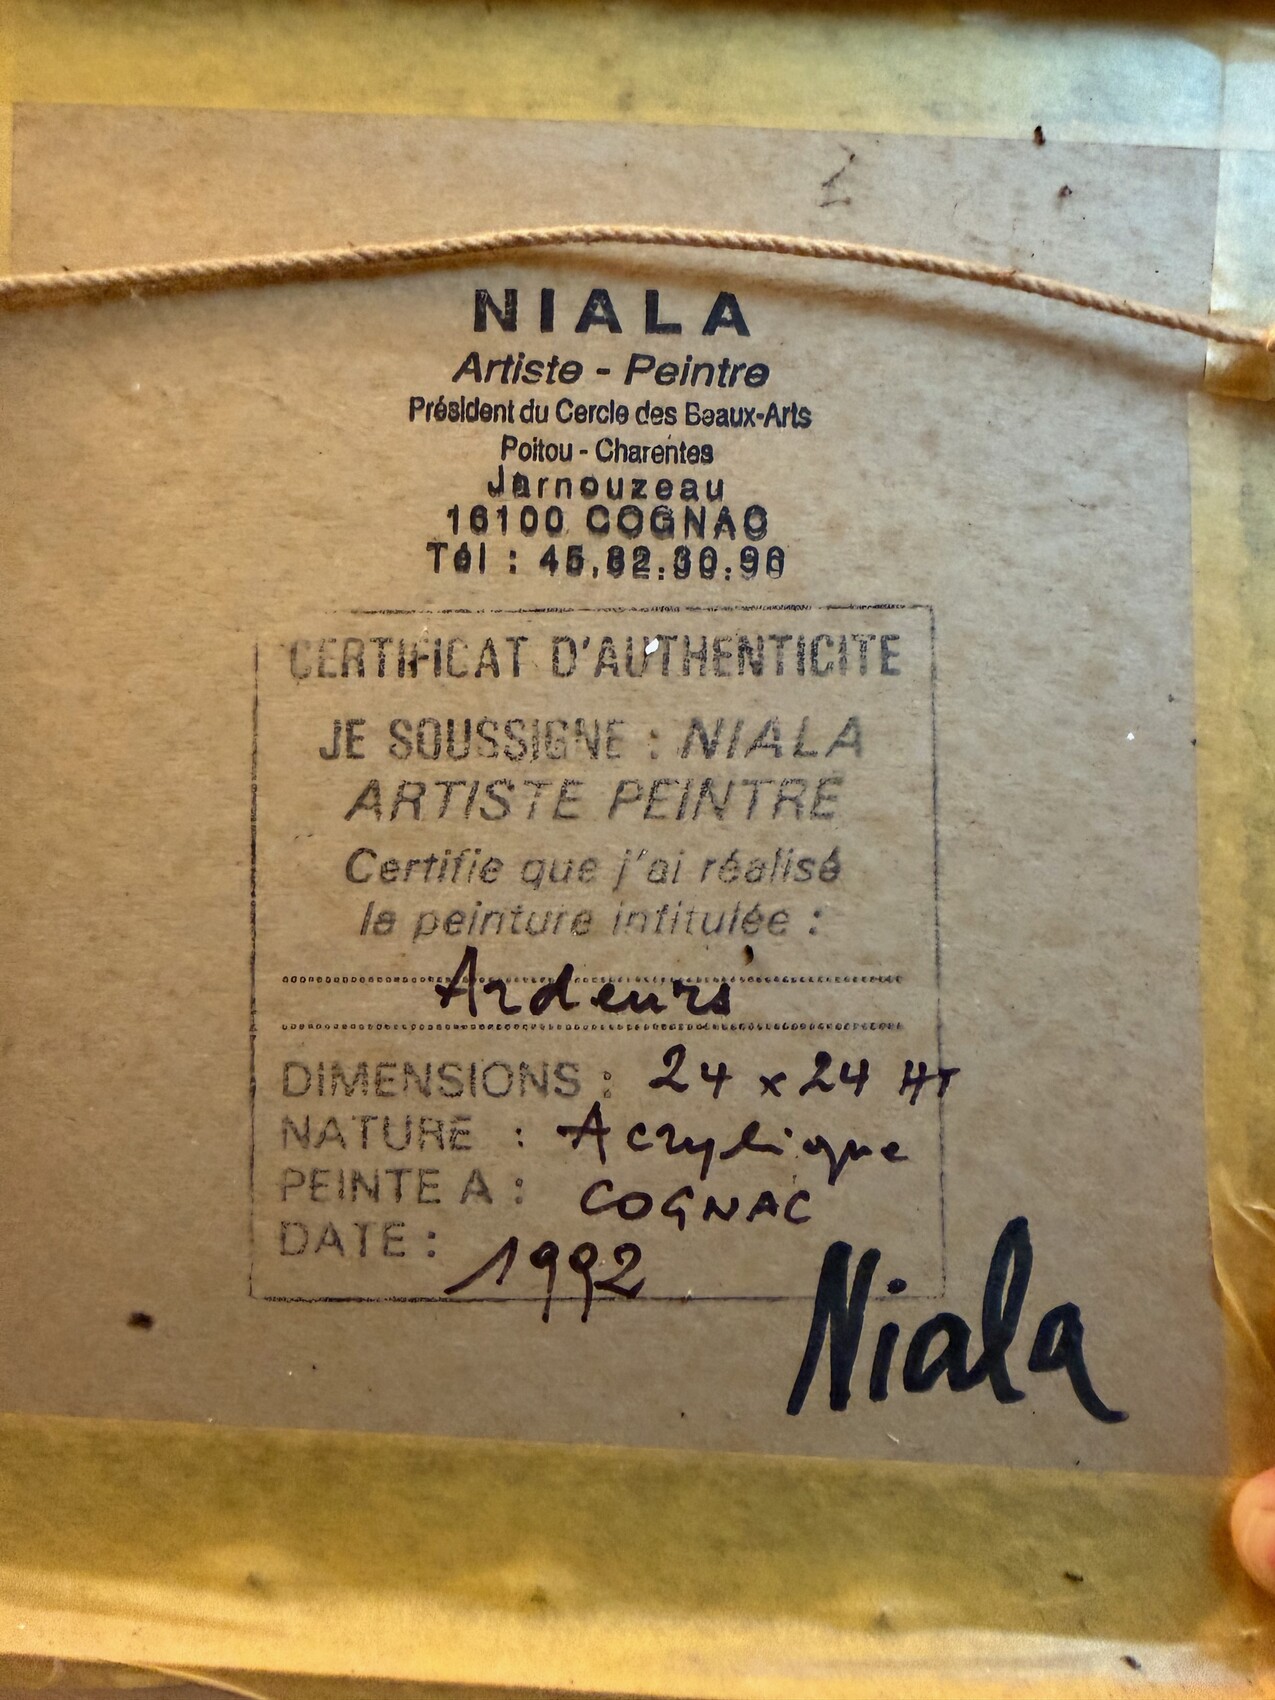 NIALA
Artiste - Peintre
Président du Cercle des Beaux-Arts
Poitou - Charentes
Jarnouzeau
16100 COGNAC
Tél :
CERTIFICAT D'AUTHENTICITE
JE SOUSSIGNE : NIALA
ARTISTE PEINTRE
Certifie que j'ai réalisé
la peinture intitulée :
Ardeurs
DIMENSIONS : 24 x 24 HT
NATURE : Acrylique
PEINTE A : COGNAC
DATE : 1992
Niala